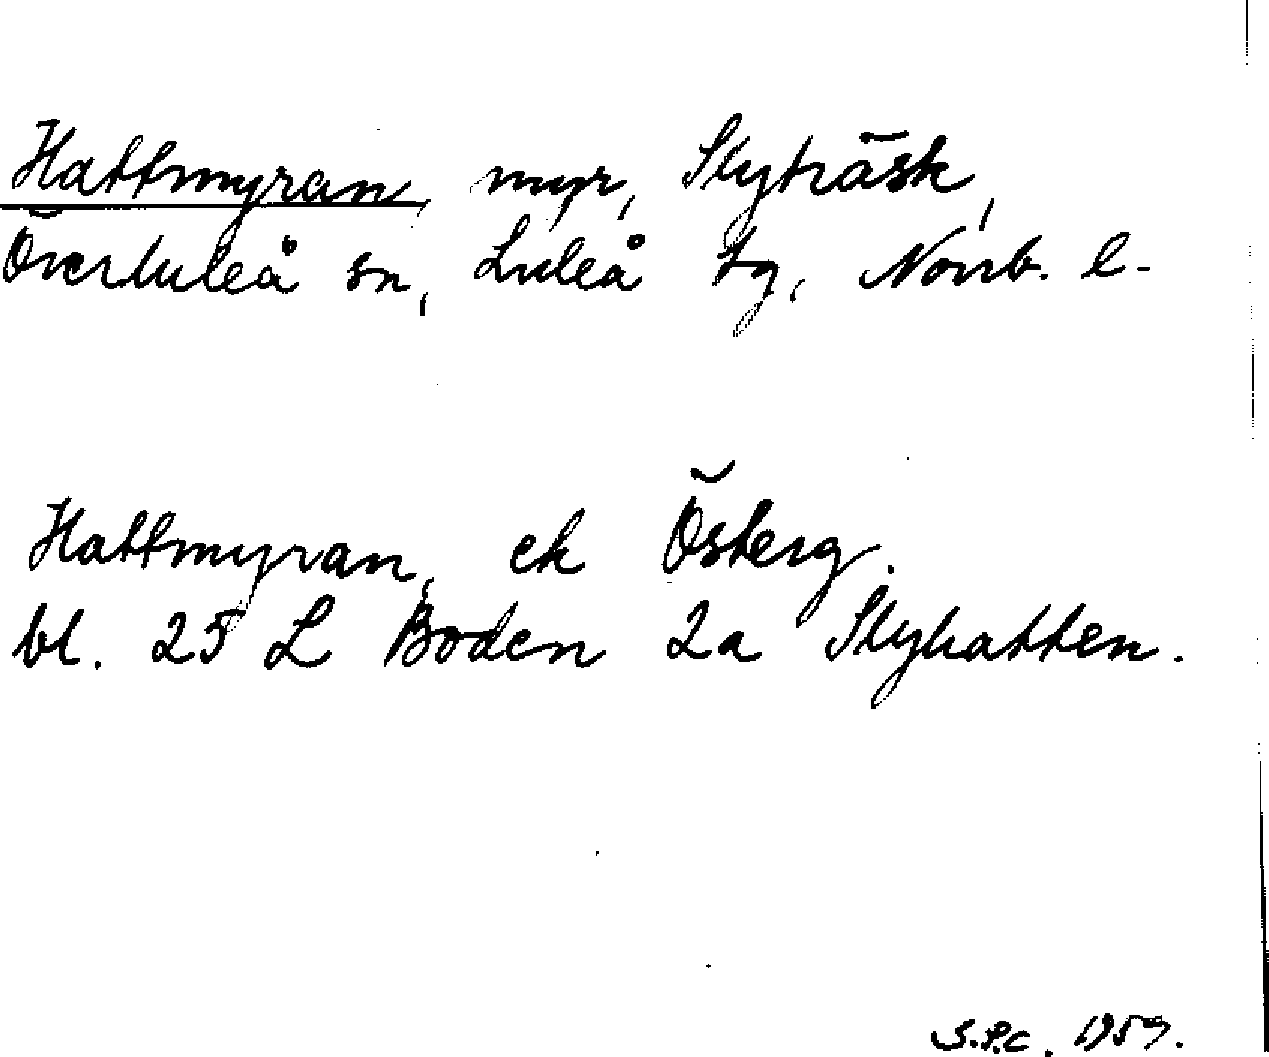 Hattmyran, myr, Slyträsk,
Överluleå sn, Luleå tg, Norrb. l.
Hattmyran, ek Österg.
bl. 25 L Boden 2a Slyhatten.
S.P.C. 1957.